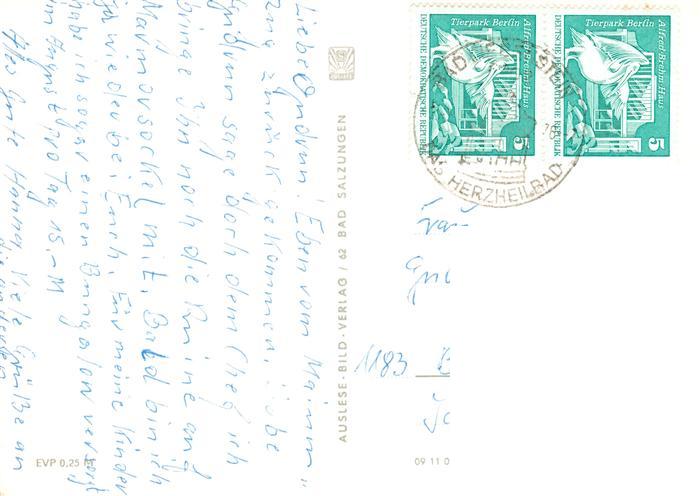 Liebe Gudrun! Eben vom Maimm-
zug zurück gekommen, übe
Gudrun sage doch dem Chef ich
bringe ihn noch die Ruine auf
Marmorsockel mit. Bald bin ich
ja wieder bei Euch. Für meine Kinder
hab ich sogar einen Bungalow versorgt
im August pro Tag 15,- M
Alles Gute Hanna. Viele Grüße an
die anderen
AUSLESE-BILD-VERLAG / 62 BAD SALZUNGEN
EVP 0,25 M
09 11 0
Tierpark Berlin
Alfred-Brehm-Haus
DEUTSCHE DEMOKRATISCHE REPUBLIK
5
Tierpark Berlin
Alfred-Brehm-Haus
DEUTSCHE DEMOKRATISCHE REPUBLIK
5
BAD
HERZHEILBAD
1183